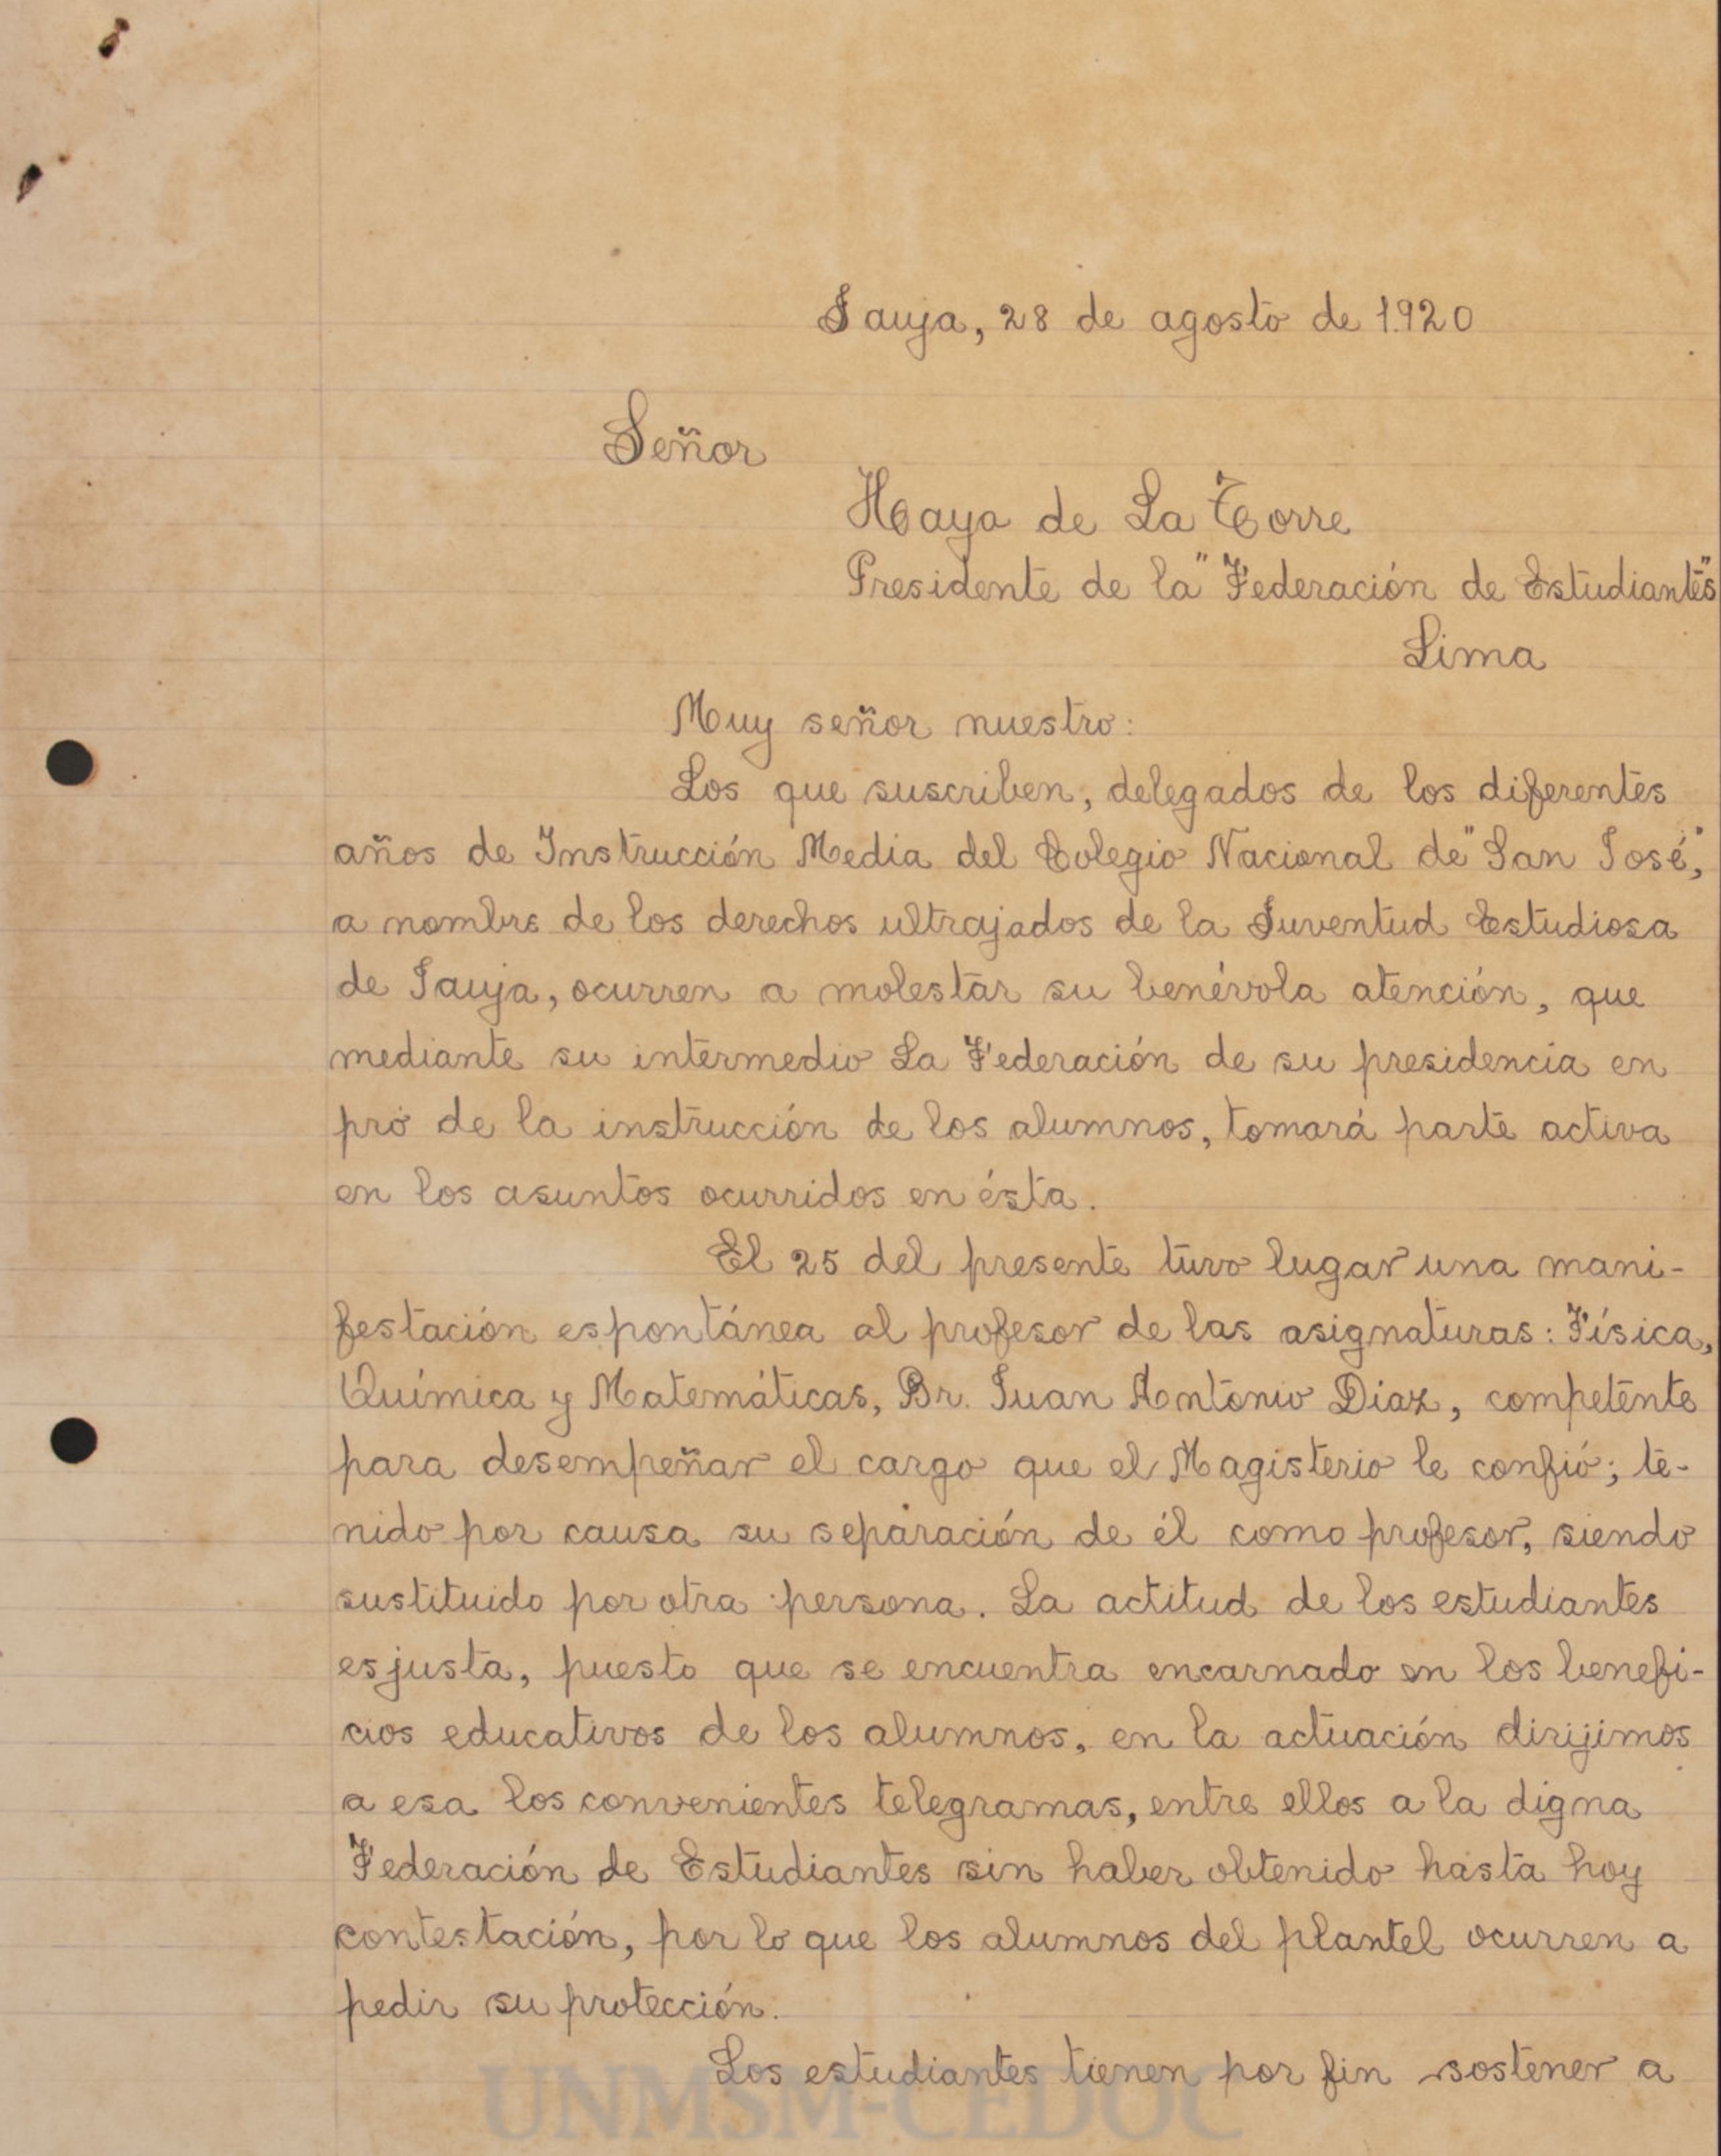 Jauja, 28 de agosto de 1920
Señor
Haya de La Torre
Presidente de la "Federación de Estudiantes"
Lima
Muy señor nuestro:
Los que suscriben, delegados de los diferentes
años de Instrucción Media del Colegio Nacional de "San José",
a nombre de los derechos ultrajados de la Juventud Estudiosa
de Jauja, ocurren a molestar su benévola atención, que
mediante su intermedio La Federación de su presidencia en
pró de la instrucción de los alumnos, tomará parte activa
en los asuntos ocurridos en ésta.
El 25 del presente tuvo lugar una mani-
festación espontánea al profesor de las asignaturas: Física,
Química y Matemáticas, Br. Juan Antonio Díaz, competente
para desempeñar el cargo que el Magisterio le confió; te-
nido por causa su separación de él como profesor, siendo
sustituido por otra persona. La actitud de los estudiantes
es justa, puesto que se encuentra encarnado en los benefi-
cios educativos de los alumnos, en la actuación dirijimos
a esa los convenientes telegramas, entre ellos a la digna
Federación de Estudiantes sin haber obtenido hasta hoy
contestación, por lo que los alumnos del plantel ocurren a
pedir su protección.
Los estudiantes tienen por fin sostener a
UNMSM-CEDOC